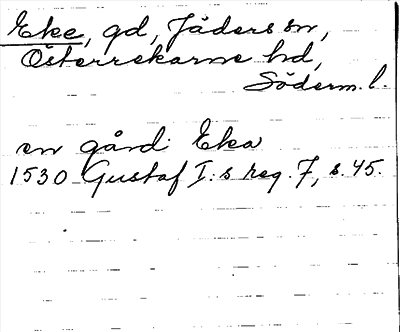 Eke, gd, Jäders sn,
Österrekarne hd,
Söderm. l.
en gård Eka
1530 Gustaf I:s reg. 7, s. 45.